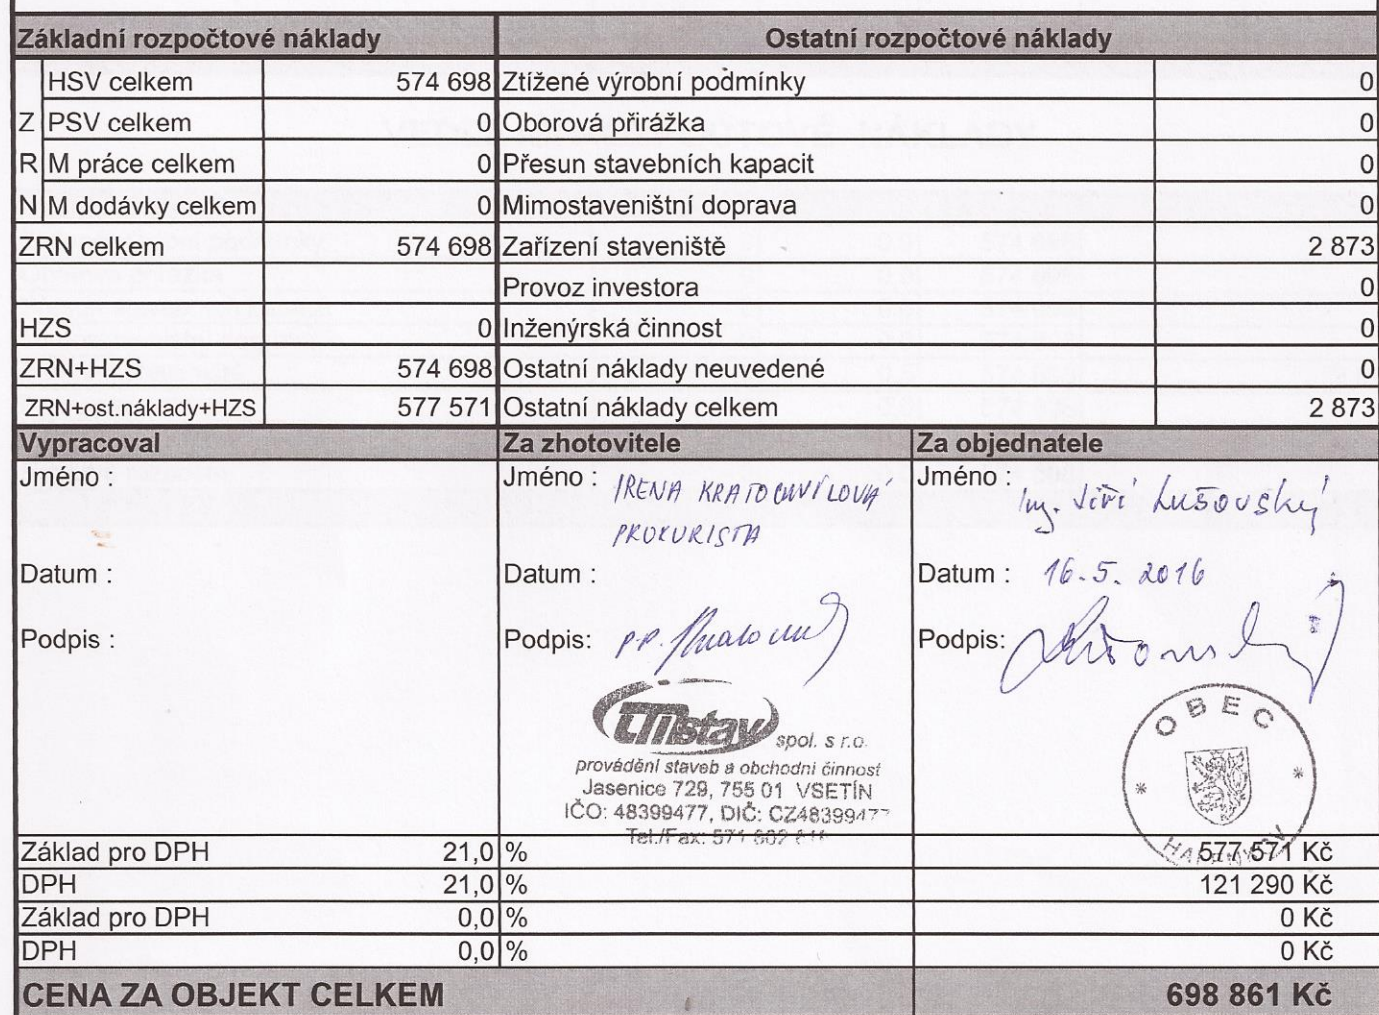 Základní rozpočtové náklady Ostatní rozpočtové náklady
HSV celkem 574 698 Ztížené výrobní podmínky 0
Z PSV celkem 0 Oborová přirážka 0
R M práce celkem 0 Přesun stavebních kapacit 0
N M dodávky celkem 0 Mimostaveništní doprava 0
ZRN celkem 574 698 Zařízení staveniště 2 873
Provoz investora 0
HZS 0 Inženýrská činnost 0
ZRN+HZS 574 698 Ostatní náklady neuvedené 0
ZRN+ost.náklady+HZS 577 571 Ostatní náklady celkem 2 873
Vypracoval Za zhotovitele Za objednatele
Jméno : Jméno : IRENA KRATOCHVÍLOVÁ Jméno : Ing. Jiří Lušovský
PROKURISTA
Datum : Datum : Datum : 16.5. 2016
Podpis : Podpis: p.p. Podpis:
spol. s r.o.
provádění staveb a obchodní činnost
Jasenice 729, 755 01 VSETÍN
IČO: 48399477, DIČ: CZ48399477
Tel./Fax: 571
OBEC
Základ pro DPH 21,0 % 577 571 Kč
DPH 21,0 % 121 290 Kč
Základ pro DPH 0,0 % 0 Kč
DPH 0,0 % 0 Kč
CENA ZA OBJEKT CELKEM 698 861 Kč